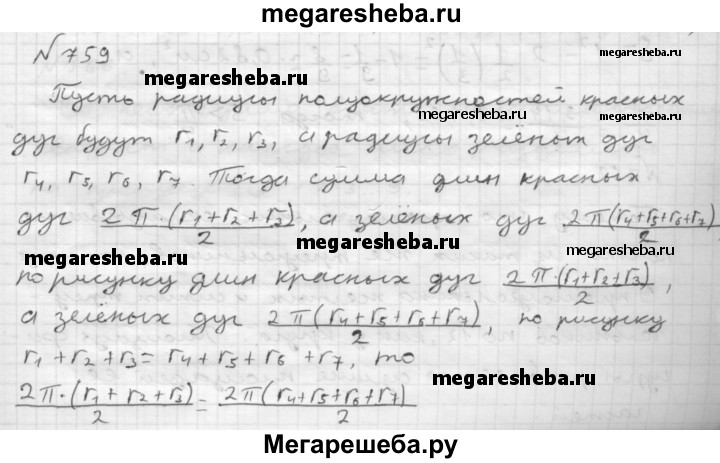 megaresheba.ru
№759
megaresheba.ru
megaresheba.ru
Пусть радиусы полуокружностей красных
megaresheba.ru
дуг будут r₁, r₂, r₃, а радиусы зелёных дуг
r₄, r₅, r₆, r₇. Тогда сумма длин красных
megaresheba.ru
дуг 2π·(r₁+r₂+r₃)/2, а зелёных дуг 2π(r₄+r₅+r₆+r₇)/2
megaresheba.ru
megaresheba.ru
по рисунку длин красных дуг 2π·(r₁+r₂+r₃)/2,
а зелёных дуг 2π(r₄+r₅+r₆+r₇)/2, по рисунку
r₁+r₂+r₃=r₄+r₅+r₆+r₇, то
megaresheba.ru
2π·(r₁+r₂+r₃)/2=2π(r₄+r₅+r₆+r₇)/2
Мегарешеба.ру